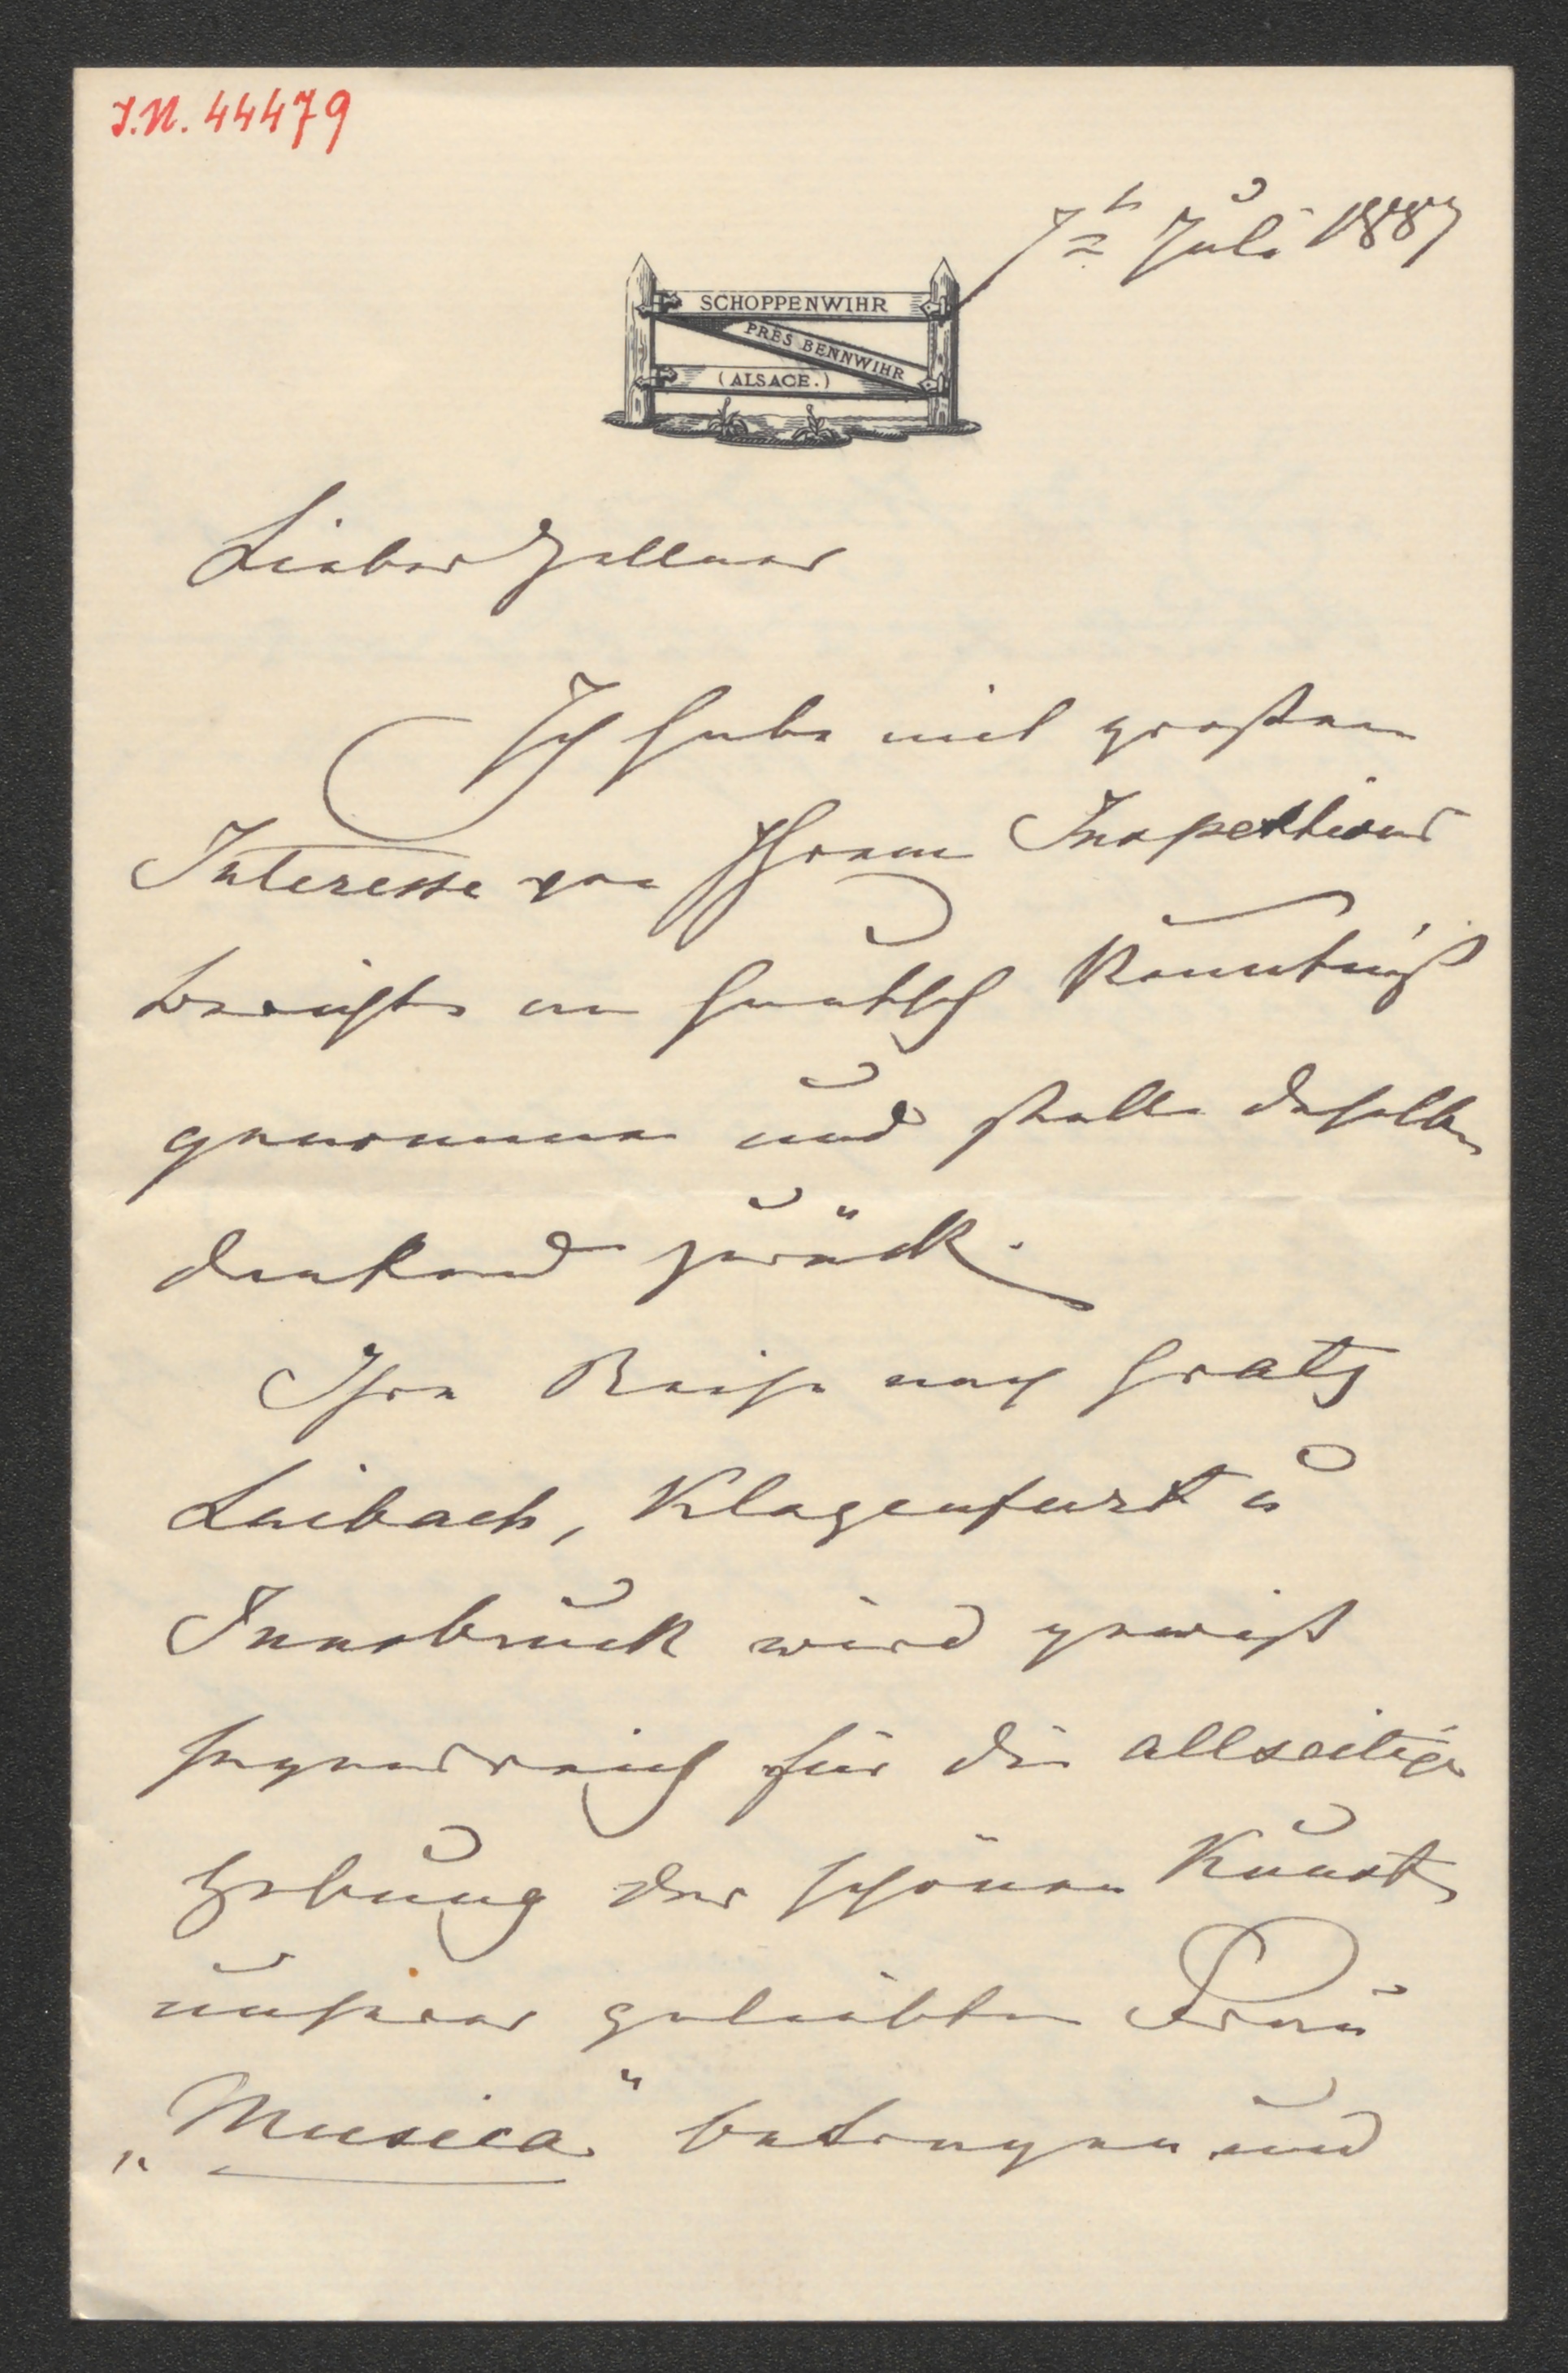 I.N. 44479
7t Juli 1887
SCHOPPENWIHR
PRÈS BENNWIHR
(ALSACE.)
Lieber Zellner
Ich habe mit großem
Interesse von Ihrem Inspections
berichte an Kenntniß
genommen und stelle denselben
dankend zurück.
Ihre Reise nach Gratz
Laibach, Klagenfurt u
Innsbruck wird gewiß
segensreich für die allseitige
Hebung der schönen Kunst
unserer geliebten Frau
„Musica" beitragen und